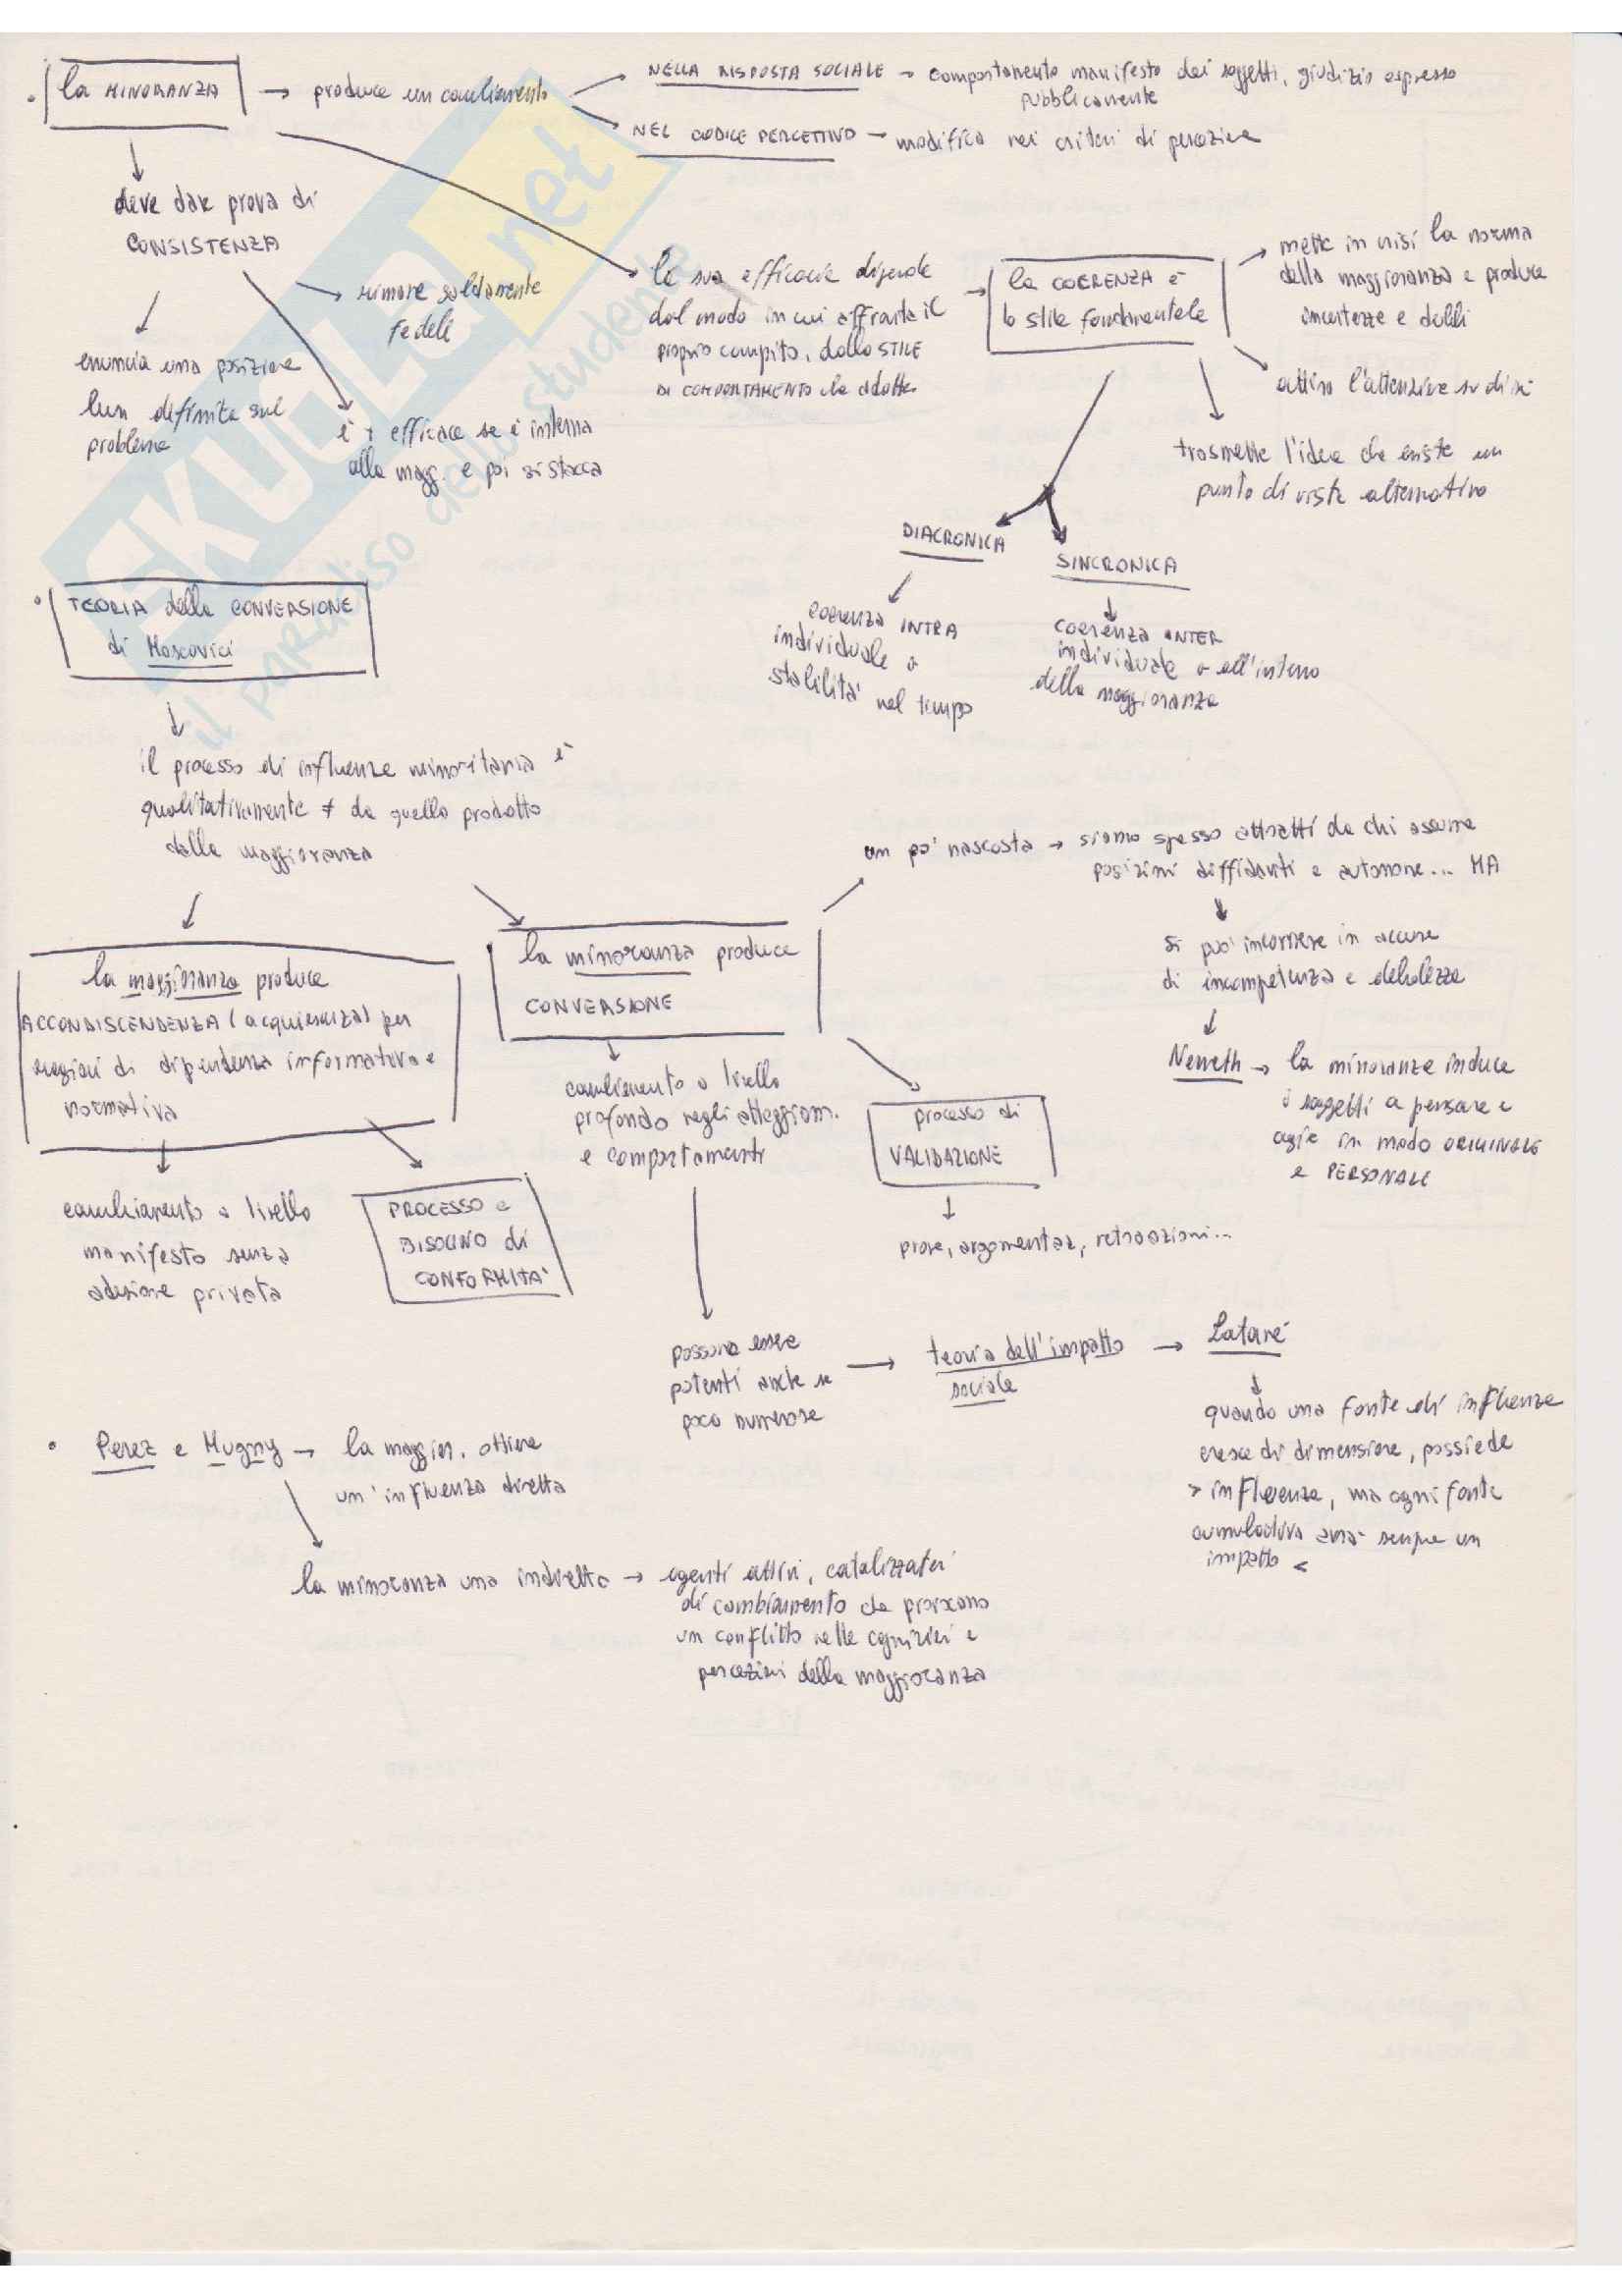 la MINORANZA → produce un cambiamento
NELLA RISPOSTA SOCIALE → comportamento manifesto dei soggetti, giudizio espresso
pubblicamente
NEL CODICE PERCETTIVO → modifica nei criteri di percezione
deve dare prova di
CONSISTENZA
enuncia una posizione
ben definita sul
problema
rimane saldamente
fedele
è + efficace se è interna
alla magg. e poi si stacca
la sua efficacia dipende
dal modo in cui affronta il
proprio compito, dallo STILE
DI COMPORTAMENTO che adotta
la COERENZA è
lo stile fondamentale
mette in crisi la norma
della maggioranza e produce
incertezze e dubbi
attira l'attenzione su di sé
trasmette l'idea che esiste un
punto di vista alternativo
DIACRONICA
coerenza INTRA
individuale o
stabilità nel tempo
SINCRONICA
coerenza INTER
individuale o all'interno
della maggioranza
TEORIA della CONVERSIONE
di Moscovici
il processo di influenza minoritaria è
qualitativamente ≠ da quello prodotto
dalla maggioranza
la maggioranza produce
ACCONDISCENDENZA (acquiescenza) per
ragioni di dipendenza informativa e
normativa
cambiamento a livello
manifesto senza
adesione privata
PROCESSO e
BISOGNO di
CONFORMITA'
la minoranza produce
CONVERSIONE
un po' nascosta → siamo spesso attratti da chi assume
posizioni diffidenti e autonome... MA
si può incorrere in accuse
di incompetenza e debolezza
Nemeth → la minoranza induce
i soggetti a pensare e
agire in modo ORIGINALE
e PERSONALE
cambiamento a livello
profondo negli atteggiam.
e comportamenti
processo di
VALIDAZIONE
prove, argomentaz, retroazioni...
possono essere
potenti anche se
poco numerose
→ teoria dell'impatto
sociale
→ Latané
quando una fonte di influenza
cresce di dimensione, possiede
> influenza, ma ogni fonte
cumulativa avrà sempre un
impatto <
Perez e Mugny → la maggior. ottiene
un'influenza diretta
la minoranza una indiretta → agenti attivi, catalizzatori
di cambiamento che provocano
un conflitto nelle cognizioni e
percezioni della maggioranza
SKUOLA.net
il paradiso dello studente